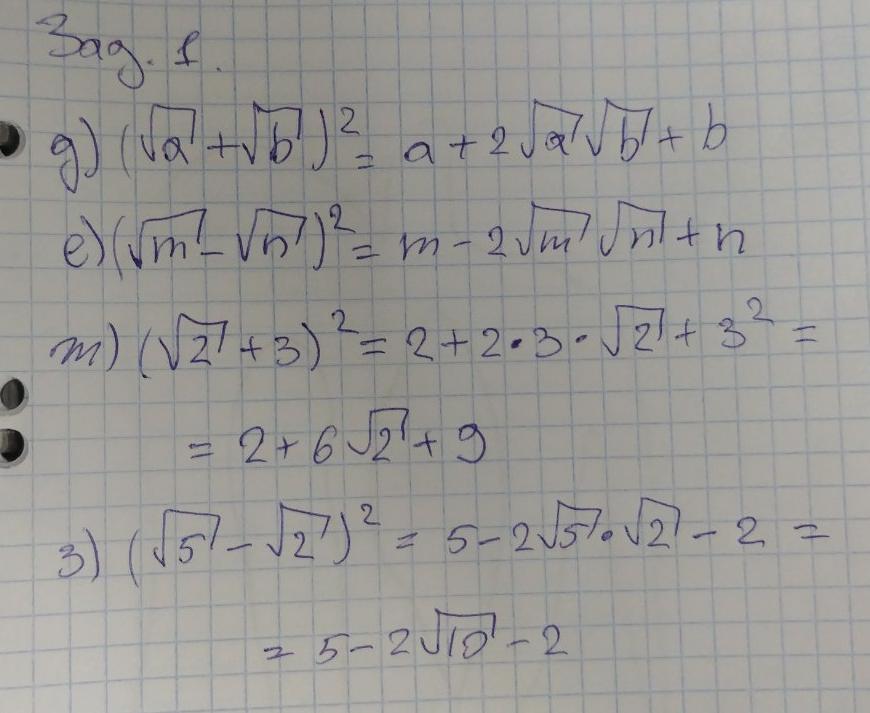 Зад. 1.
д) (√a + √b)² = a + 2√a √b + b
е) (√m - √n)² = m - 2√m √n + n
т) (√2 + 3)² = 2 + 2·3·√2 + 3² =
= 2 + 6√2 + 9
з) (√5 - √2)² = 5 - 2√5·√2 - 2 =
= 5 - 2√10 - 2